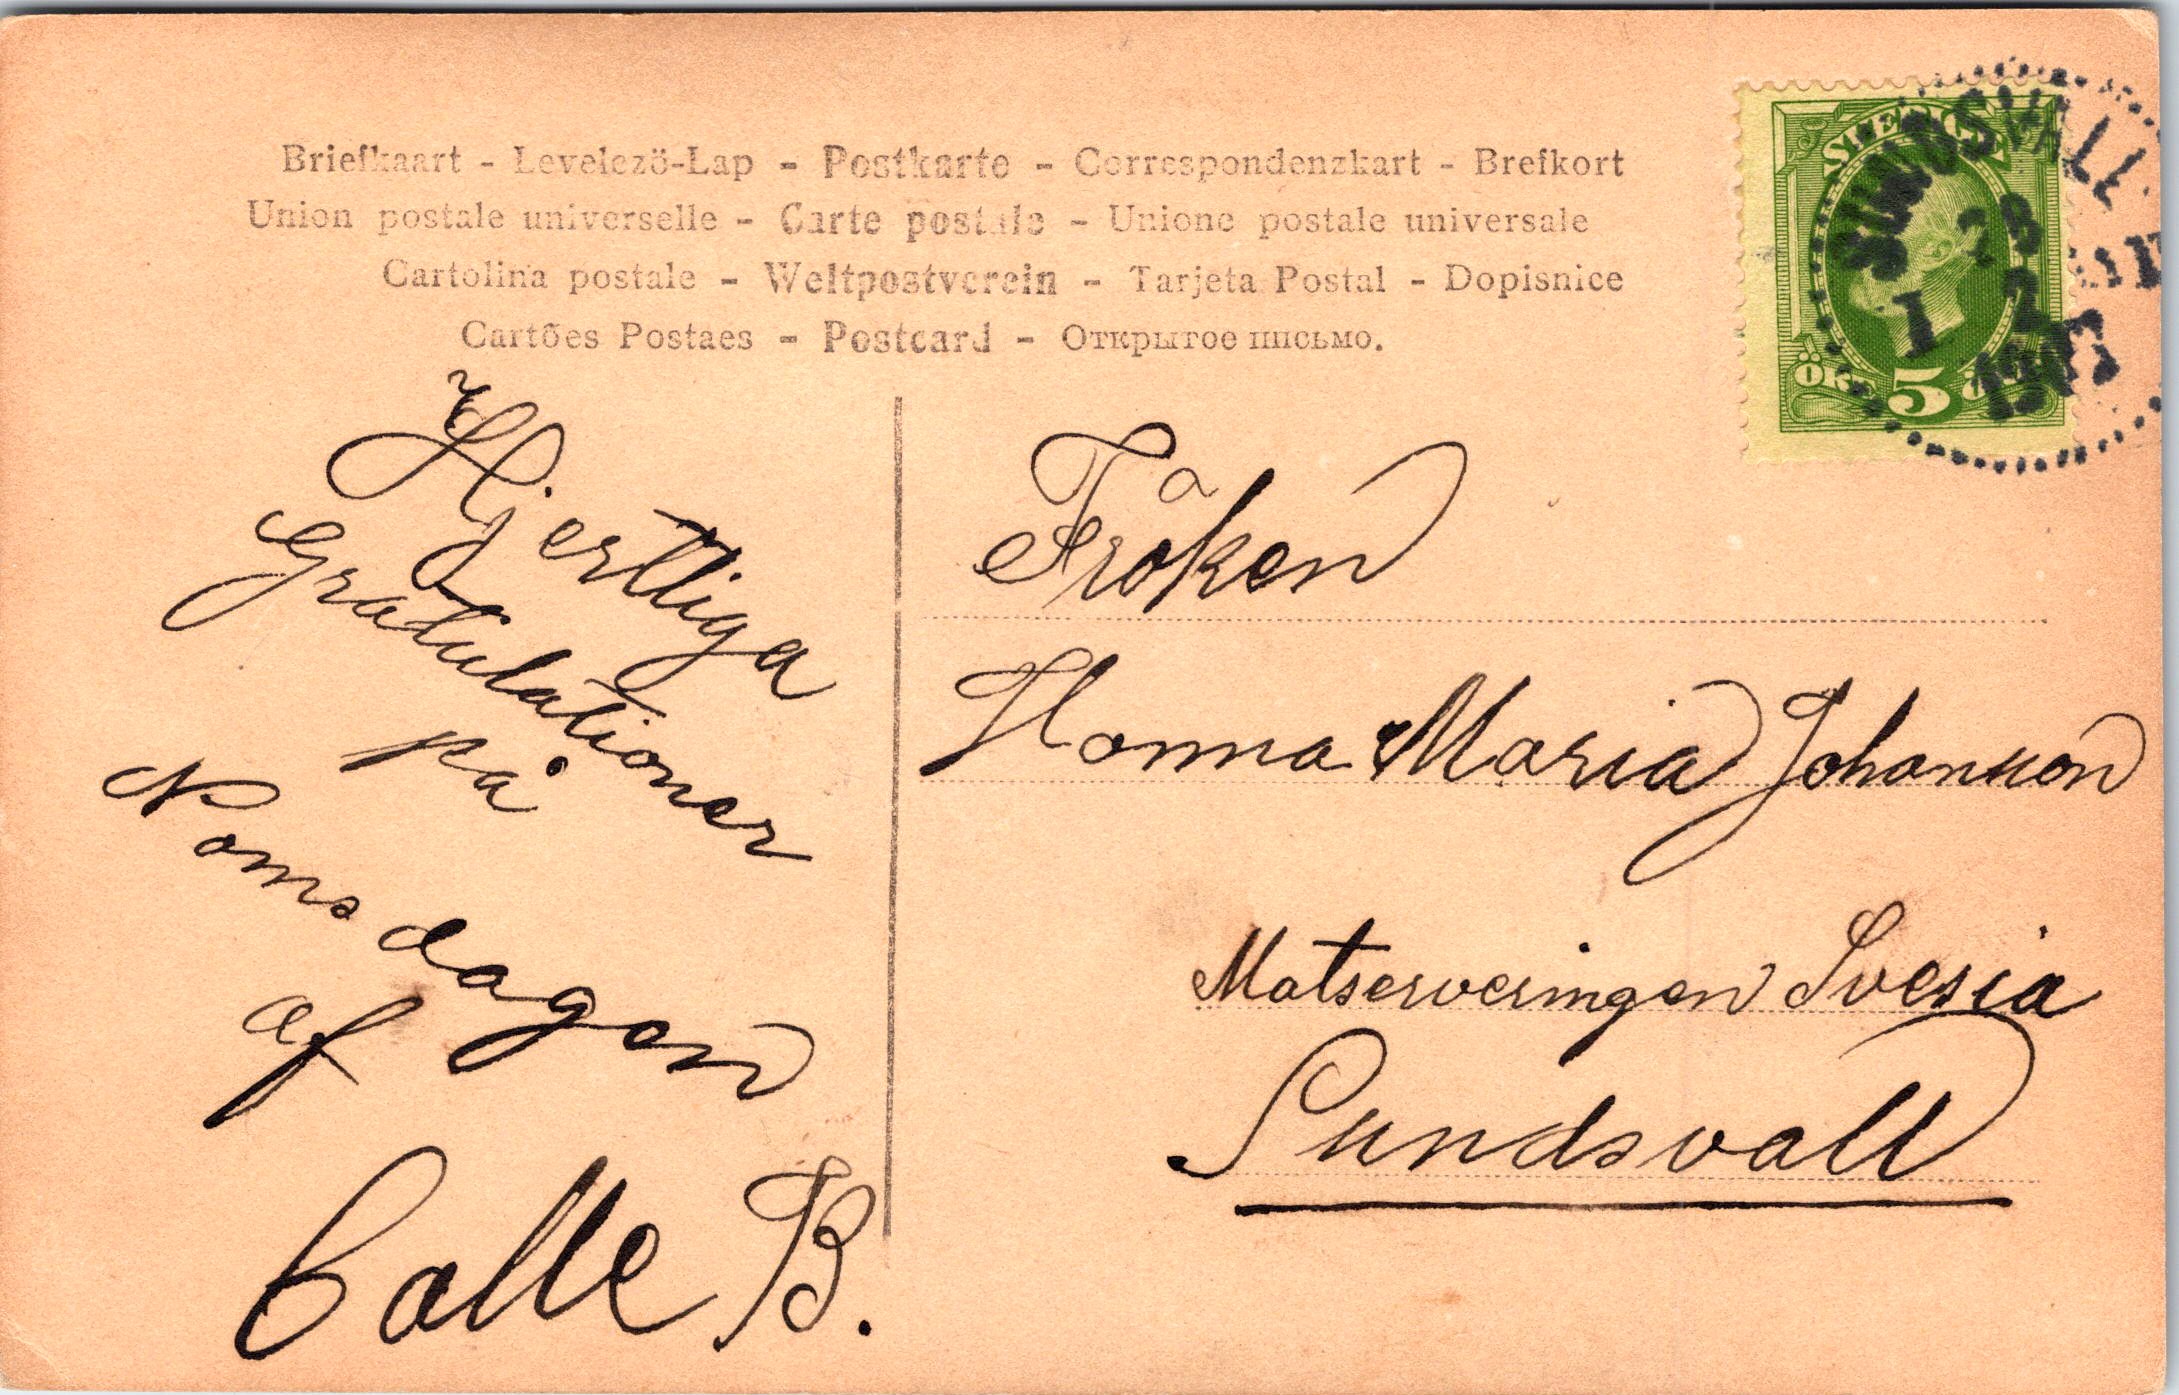 Briefkaart - Levelezö-Lap - Postkarte - Correspondenzkart - Brefkort
Union postale universelle - Carte postale - Unione postale universale
Cartolina postale - Weltpostverein - Tarjeta Postal - Dopisnice
Cartões Postaes - Postcard - Открытое письмо.
SVERIGE
ÖRE 5
SUNDSVALL
1907
Hjertliga
Gratulationer
på
Namsdagen
af
Calle B.
Fröken
Hanna Maria Johansson
Matserveringen Svesia
Sundsvall